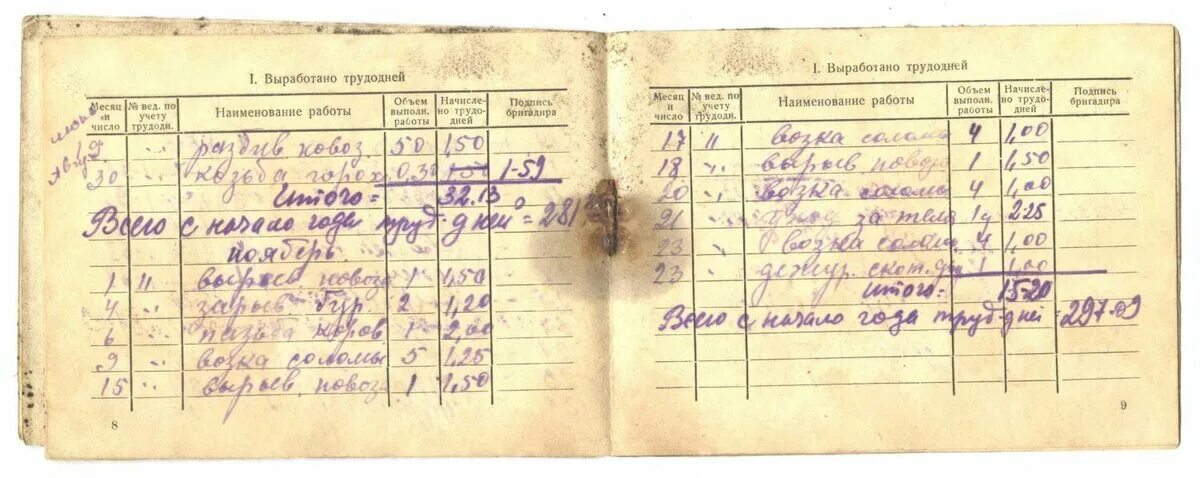 I. Выработано трудодней
Месяц и число № вед. по учету трудодн. Наименование работы Объем выполн. работы Начислено трудодней Подпись бригадира
июль
Август
9 " разбив навоз. 50 1,50
30 " козьба горох 0,3 1-59
Итого = 32.13
Всего с начало года труд-дней = 281
ноябрь.
1 11 вырыв. навоза 1 1,50
4 " зарыв. бур. 2 1,20
6 " пазьба коров 1 2,00
9 " возка соломы 5 1,25
15 " вырыв. навоза 1 1,50
8
I. Выработано трудодней
Месяц и число № вед. по учету трудодн. Наименование работы Объем выполн. работы Начислено трудодней Подпись бригадира
17 11 возка соломы 4 1,00
18 " вырыв. навоза 1 1,50
20 " возка соломы 4 1,00
21 " за теля 1 2 25
23 " возка соломы 4 1,00
23 " дежур. скот. 1 1,00
Итого = 15-20
Всего с начало года труд-дней = 297-09
9